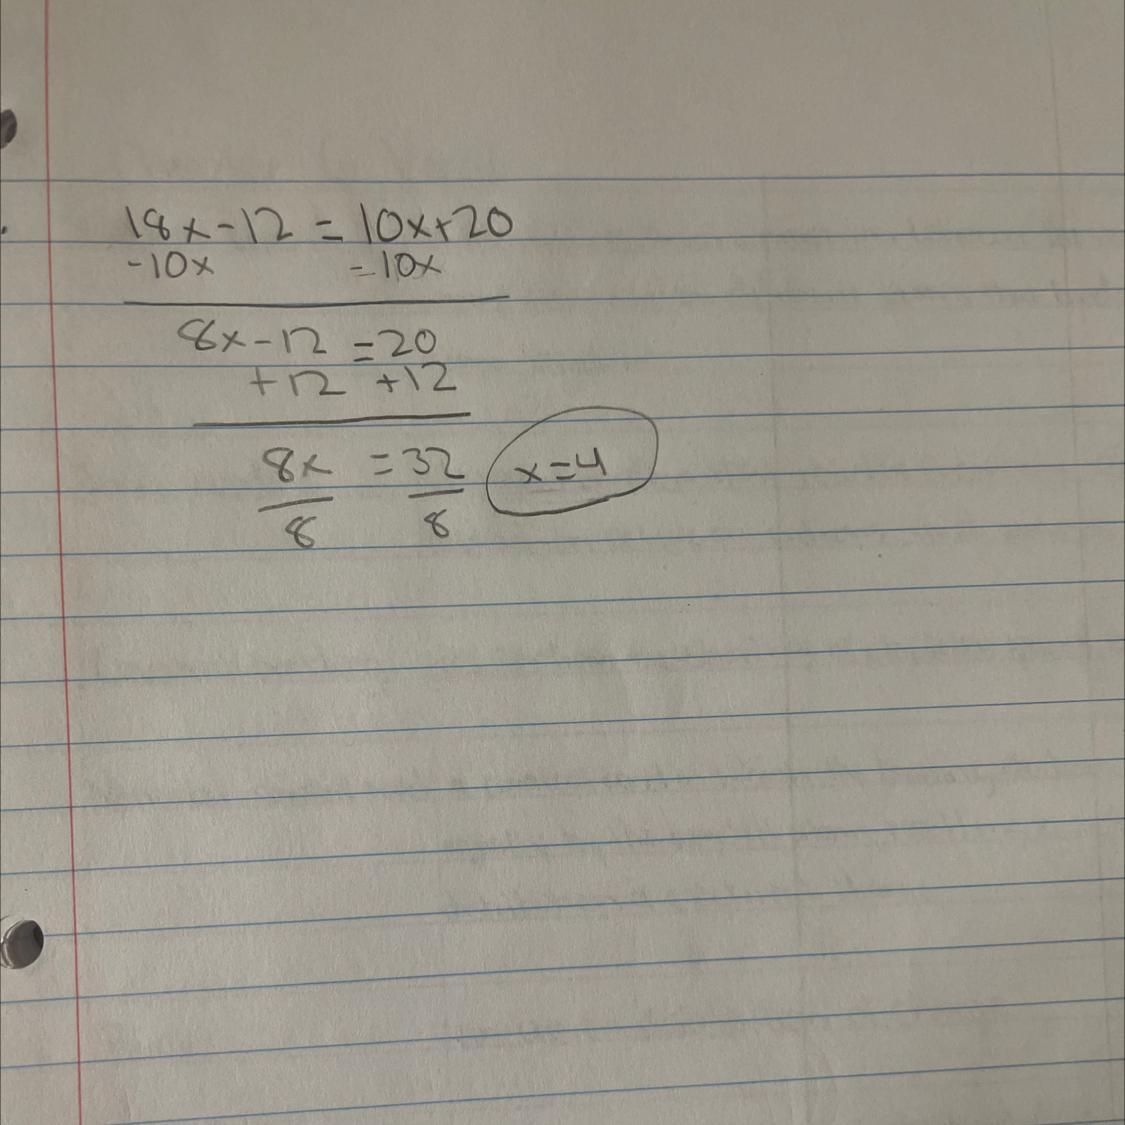 18x-12 = 10x+20
-10x = 10x
8x-12 = 20
+12 +12
8x = 32 x=4
8 8